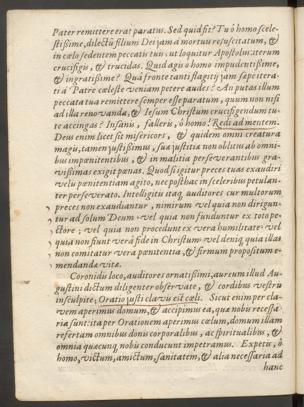 Pater remittere erat paratus. Sed quid fit? Tu ô homo scele-
stißime, dilectũ filium Dei jam à mortuis resuscitatum, &
in cælo sedentem peccatis tuis: ut loquitur Apostolus: iterum
crucifigis, & trucidas. Quid agis ô homo impudentißime,
& ingratißime? Quâ fronte tanti flagitij jam sæpe itera-
ti à Patre cœleste veniam petere audes? An putas illum
peccata tua remittere semper esse paratum, quum non nisi
ad illa renovanda, & Iesum Christum crucifigendum tu-
te accingas? Insanis, falleris, ô homo! Redi ad mentem.
Deus enim licet sit misericors, & quidem omni creatura
magis, tamen justißimus, sua justitia non oblitus ab omni-
bus impœnitentibus, & in malitia perseverantibus gra-
vißimas exigit pœnas. Quod si igitur preces tuas exaudiri
velis pœnitentiam agito, nec posthac in sceleribus petulan-
ter perseverato. Intelligitis itaq; auditores cur multorum
preces non exaudiantur, nimirum vel quia non dirigun-
tur ad solum Deum: vel quia non funduntur ex toto pe-
ctore; vel quia non procedunt ex vera humilitate: vel
quia non fiunt verâ fide in Christum: vel deniq; quia illas
non comitatur vera pœnitentia, & firmum propositum e-
mendandæ vitæ.
Coronidis loco, auditores ornatißimi, aureum illud Au-
gustini dictum diligenter observate, & cordibus vestris
insculpite; Oratio justi clavis est cœli. Sicut enim per cla-
vem aperimus domum, & accipimus ea, quæ nobis necessa-
ria sunt: ita per Orationem aperimus cælum, domum illam
refertam omnibus donis corporalibus, ac spiritualibus, &
omnia quæcunq; nobis conducunt impetramus. Expetis, ô
homo, victum, amictum, sanitatem, & alia necessaria ad
hanc